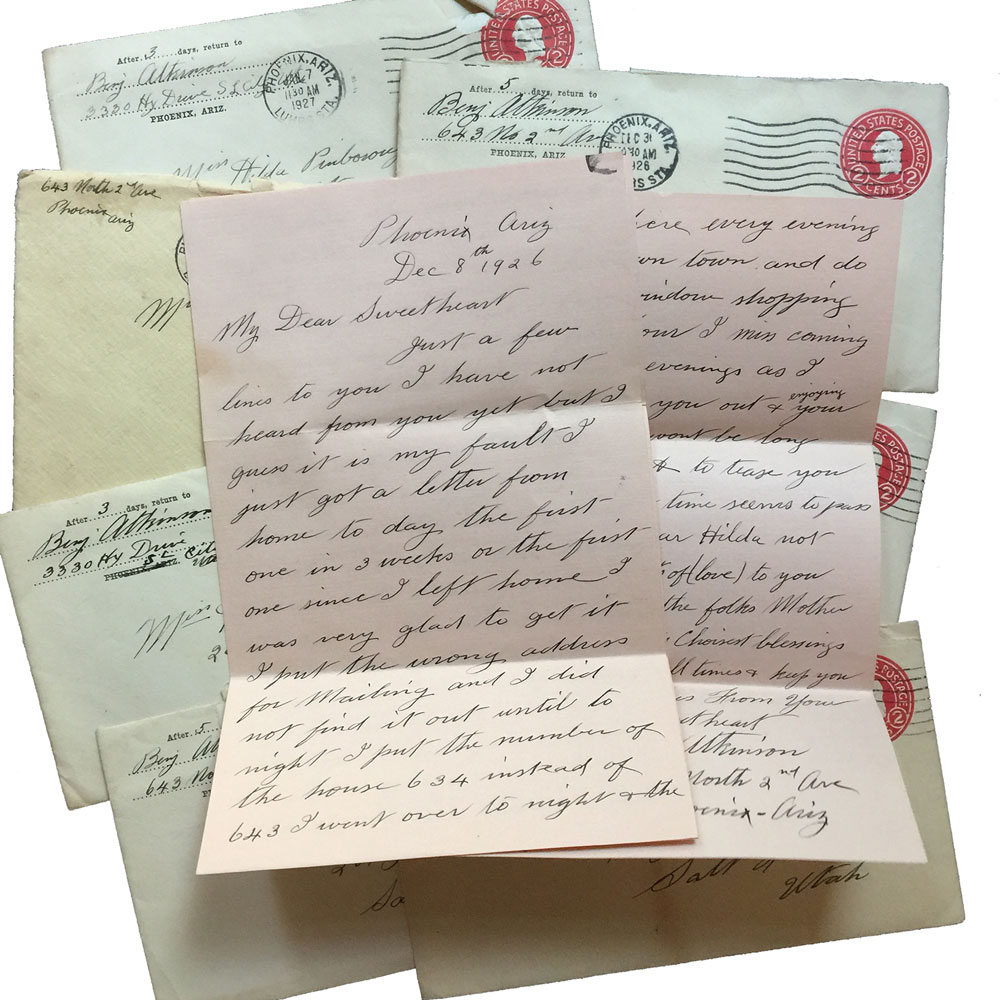 After 3 days, return to
Benj Atkinson
3330 Hy Drive S L City
PHOENIX, ARIZ.
PHOENIX, ARIZ.
JAN 7
11 30 AM
1927
UNITED STATES POSTAGE
2
Miss Hilda
After 5 days, return to
Benj Atkinson
643 No 2nd Ave
PHOENIX, ARIZ
PHOENIX, ARIZ.
DEC 31
30 AM
1926
UNITED STATES POSTAGE
2 CENTS 2
643 North 2nd Ave
Phoenix Ariz
Phoenix Ariz
Dec 8th 1926
My Dear Sweetheart
Just a few
lines to you I have not
heard from you yet but I
guess it is my fault I
just got a letter from
home to day the first
one in 3 weeks or the first
one since I left home I
was very glad to get it
I put the wrong address
for Mailing and I did
not find it out until to
night I put the number of
the house 634 instead of
643 I went over to night & the
every evening
town and do
window shopping
I miss coming
evenings as I
you out & enjoying your
wont be long
to tease you
time seems to pass
Hilda not
of (love) to you
the folks Mother
Choisest blessings
times & keep you
From Your
Atkinson
North 2nd Ave
- Ariz
After 3 days, return to
Benj Atkinson
3330 Hy Drive
PHOENIX, ARIZ. S L City
Miss
POSTAGE
2
After 5
Benj
643 No
POSTAGE
2
Salt
Utah